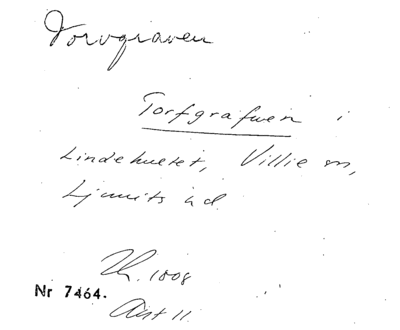 Torvgraven
Torfgrafven i
Lindehultet, Villie sn,
Ljunits hd
Th. 1008
Nr 7464.
Akt 11.